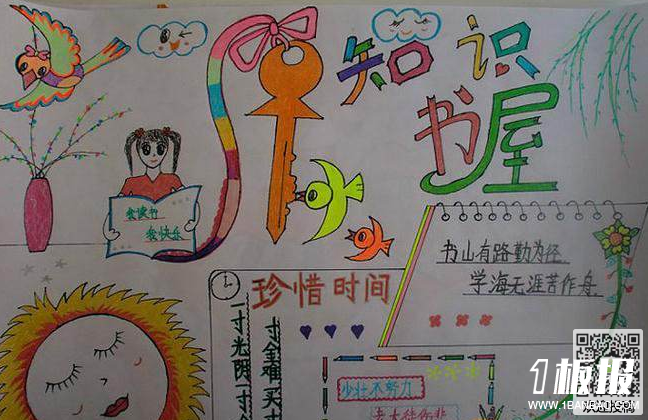 知识
书屋
爱读书
爱快乐
书山有路勤为径
学海无涯苦作舟
珍惜时间
一寸光阴一寸
寸金难买寸
少壮不努力
老大徒伤悲
1板报
WWW.1BANBAO.COM